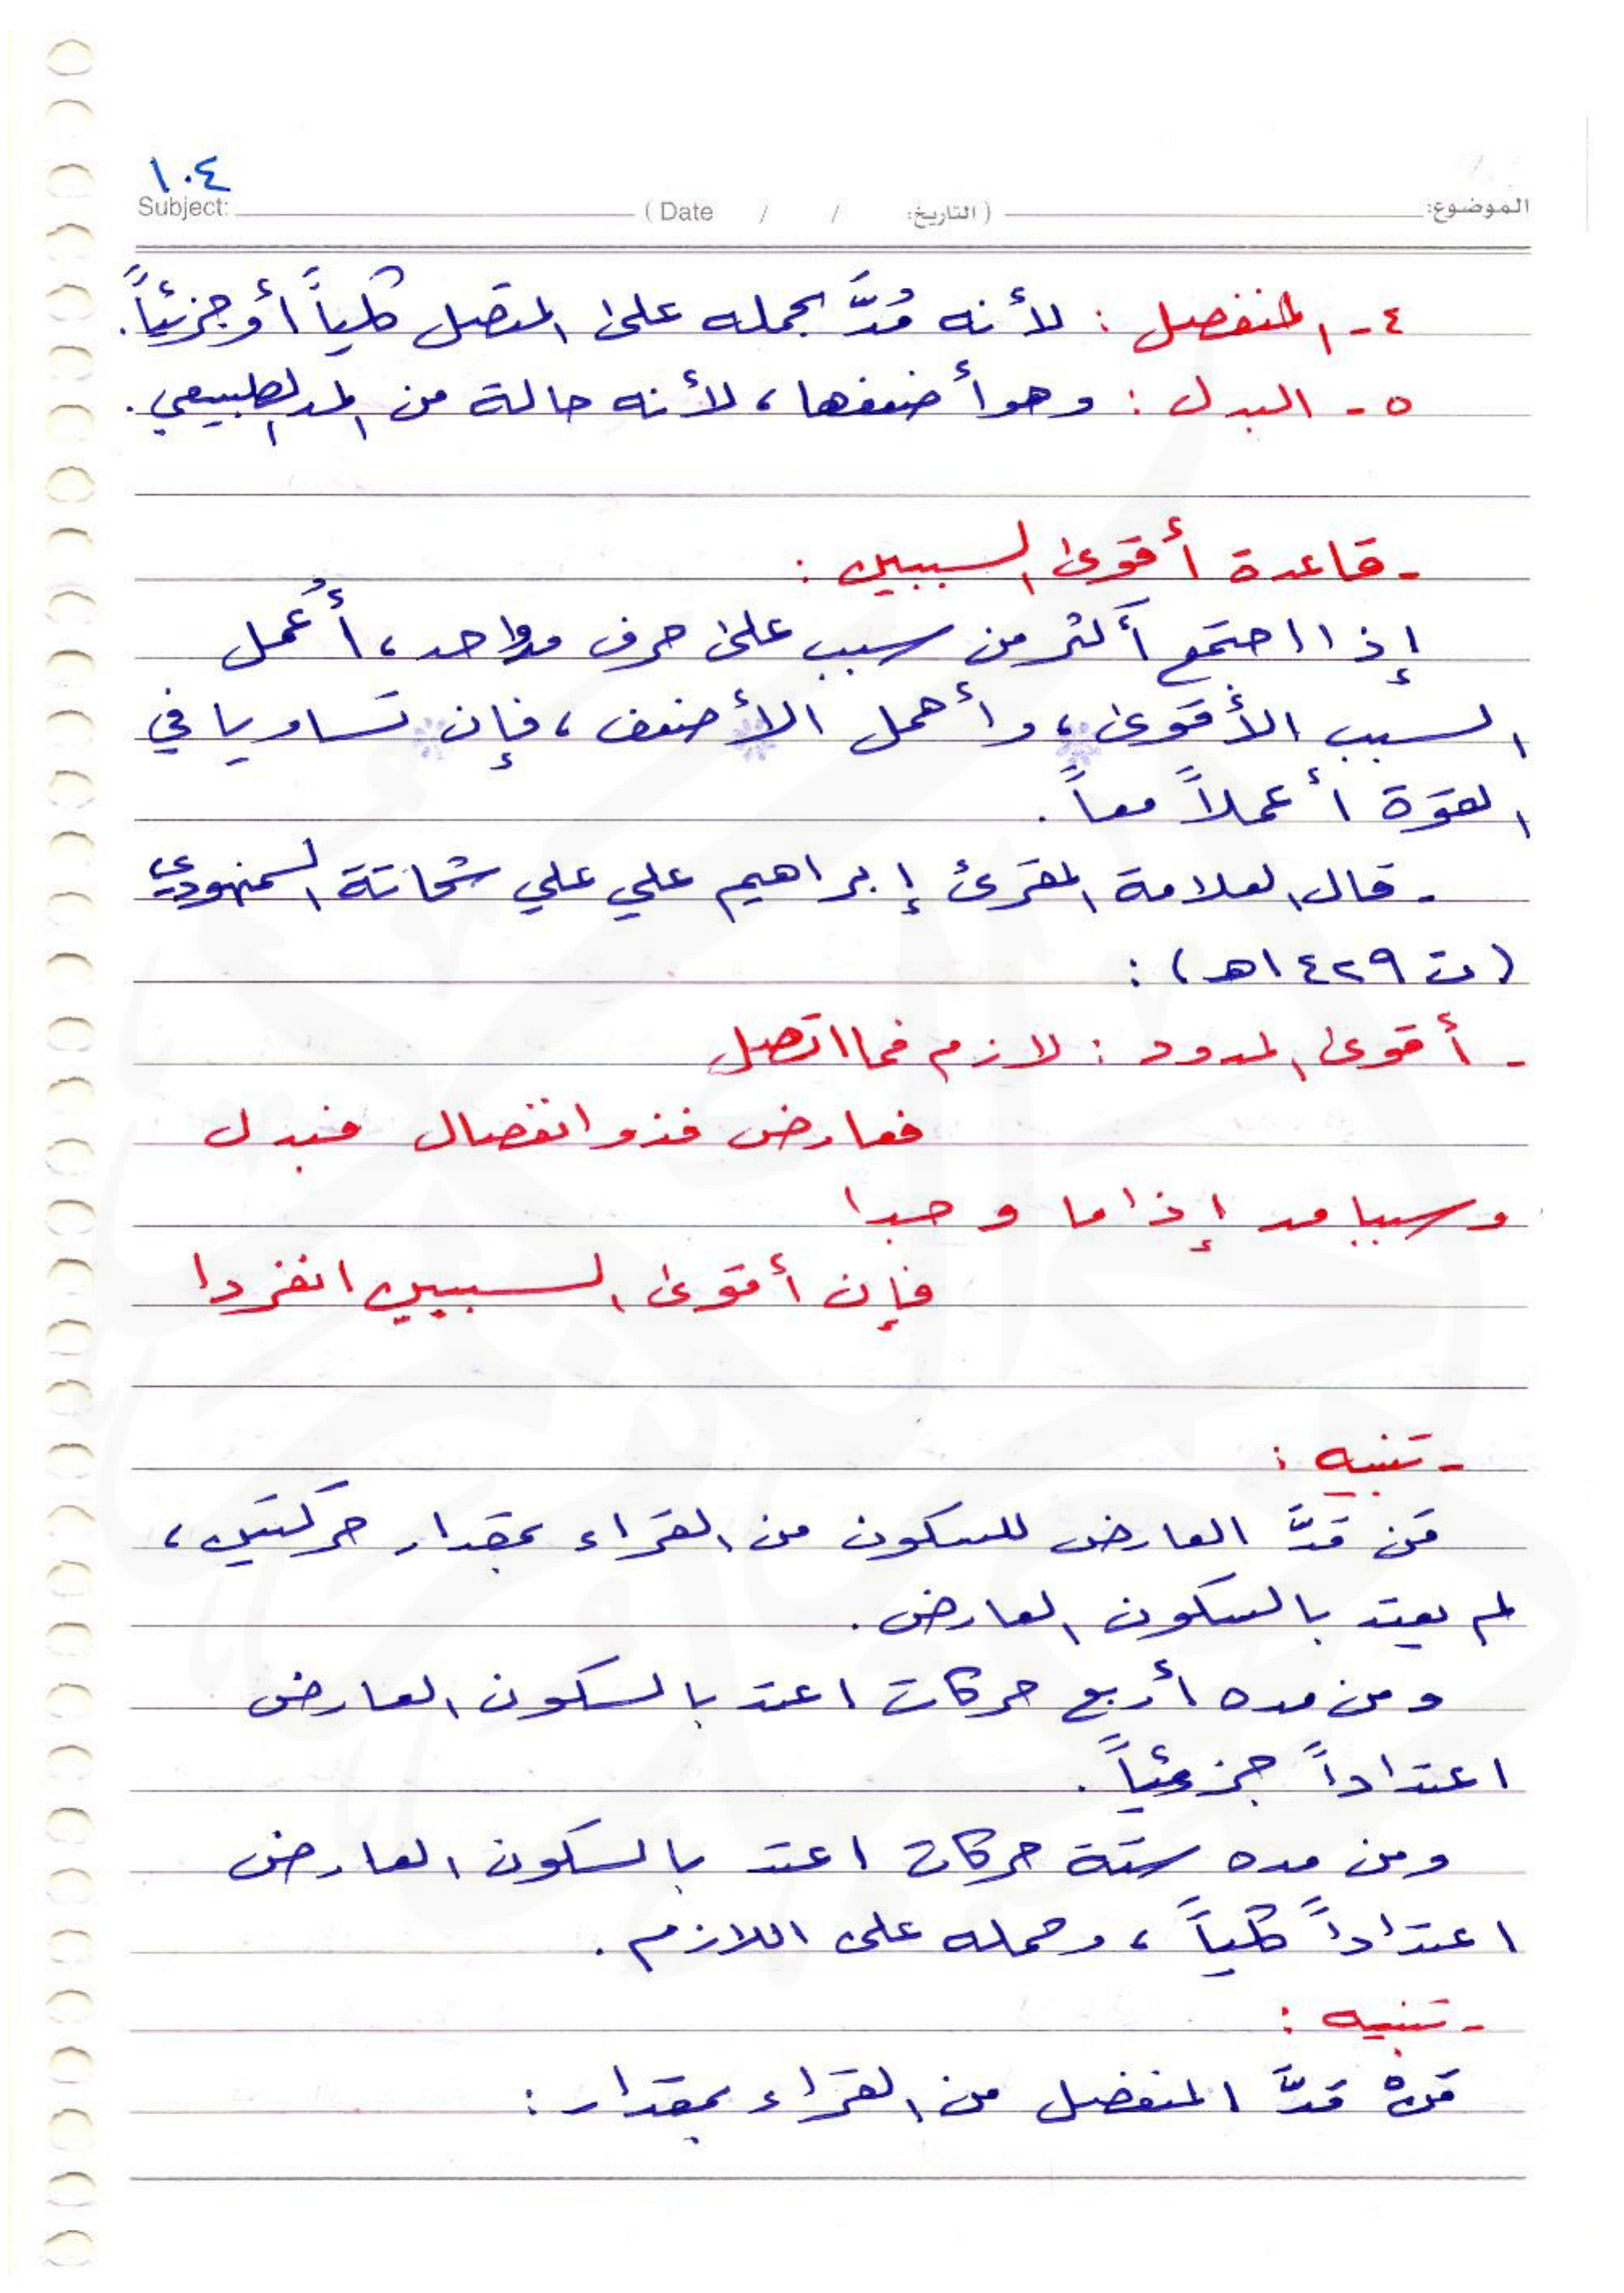 ١٠٤
Subject: (Date / / التاريخ:) الموضوع:
٤- المنفصل : لأنه مُدَّ بحمله على المتصل كلياً أو جزئياً.
٥- البدل : وهو أضعفها، لأنه حالة من المد الطبيعي.
- قاعدة أقوى السببين :
إذا اجتمع أكثر من سبب على حرف مد واحد، أُعمل
السبب الأقوى، وأهمل الأضعف، فإن تساويا في
القوة أعملاً معاً.
- قال العلامة المقرئ إبراهيم علي علي شحاتة السمنودي
(ت ١٤٢٩هـ) :
- أقوى المدود : لازم فما اتصل
فعارض فذو انفصال فبدل
وسببا مد إذا ما وجدا
فإن أقوى السببين انفردا
- تنبيه :
مَن مَدَّ العارض للسكون من القراء بمقدار حركتين،
لم يعتد بالسكون العارض.
ومن مده أربع حركات اعتد بالسكون العارض
اعتداداً جزئياً.
ومن مده ستة حركات اعتد بالسكون العارض
اعتداداً كلياً، وحمله على اللازم.
- تنبيه :
مَنْ مَدَّ المنفصل من القراء بمقدار :